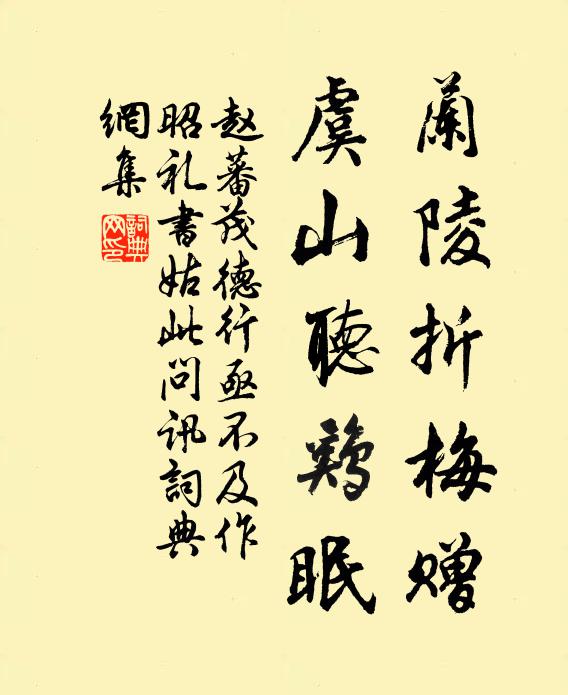 蘭陵折梅贈
虞山聽鷄眠
赵蕃茂德行亟不及作
昭礼書姑此問訊詞典
網集
詞典
网印